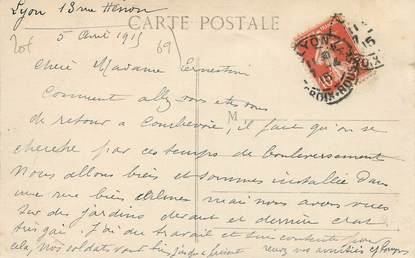 Lyon 13 rue Hénon
CARTE POSTALE
5 Avril 1915
69
Chère Madame Ernestine
Comment allez vous et vous
de retour a Courbevoie, il fait qu'on se
cherche par ces temps de bouleversement
M
Nous allons bien et sommes installée dans
une rue bien calme mais nous avons vues
sur des jardins devant et derrière c'est
très gai. J'ai du travail et suis contente pour
cela, nos soldats vont bien jusqu'a présent
recevez nos amitiés
LYON
CROIX-ROUSSE
15